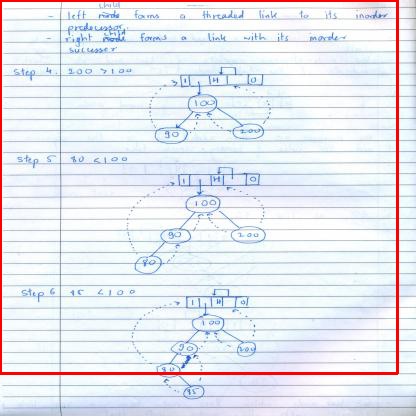 child
- left node forms a threaded link to its inorder
predecessor.
- right child node forms a link with its inorder
successor
Step 4. 200 > 100
1 H 0
100
90 200
Step 5 80 < 100
1 H 0
100
90 200
80
Step 6 85 < 100
1 H 0
100
90 200
80
85